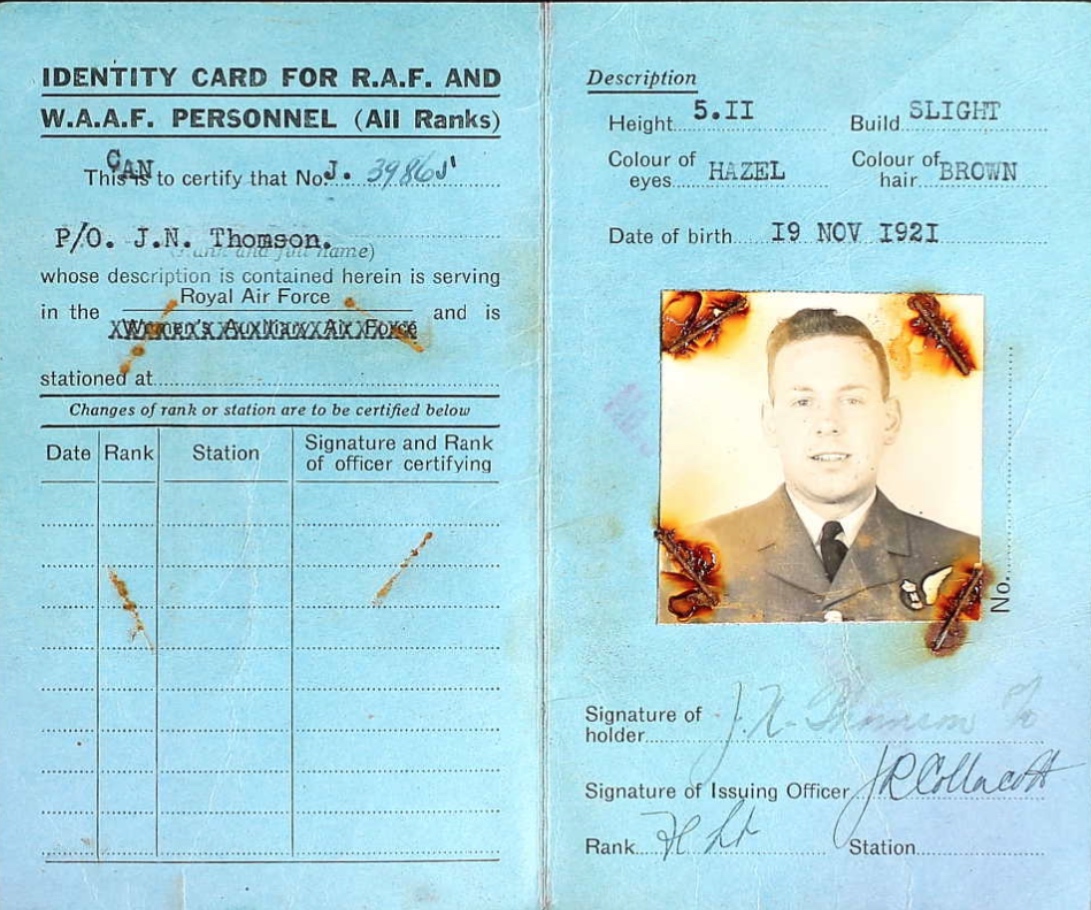 IDENTITY CARD FOR R.A.F. AND
W.A.A.F. PERSONNEL (All Ranks)
CAN
This is to certify that No. J. 3986
P/O. J.N. Thomson.
(Rank and full name)
whose description is contained herein is serving
Royal Air Force
in the and is
Women's Auxiliary Air Force
stationed at
Changes of rank or station are to be certified below
Date Rank Station Signature and Rank of officer certifying
Description
Height 5.II Build SLIGHT
Colour of eyes HAZEL Colour of hair BROWN
Date of birth 19 NOV 1921
No.
Signature of holder J. N. Thomson P/O
Signature of Issuing Officer J R Collacott
Rank F/Lt Station